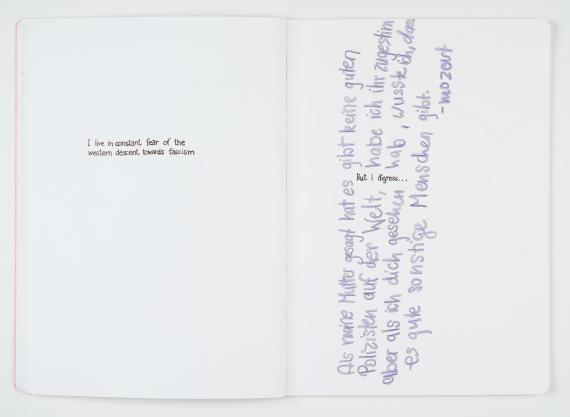 I live in constant fear of the
western descent towards fascism
But I digress...
Als meine Mutter gesagt hat es gibt keine guten
Polizisten auf der Welt, habe ich ihr zugestim
aber als ich dich gesehen hab, wusste ich, dass
es gute sonstige Menschen gibt.
-mozart